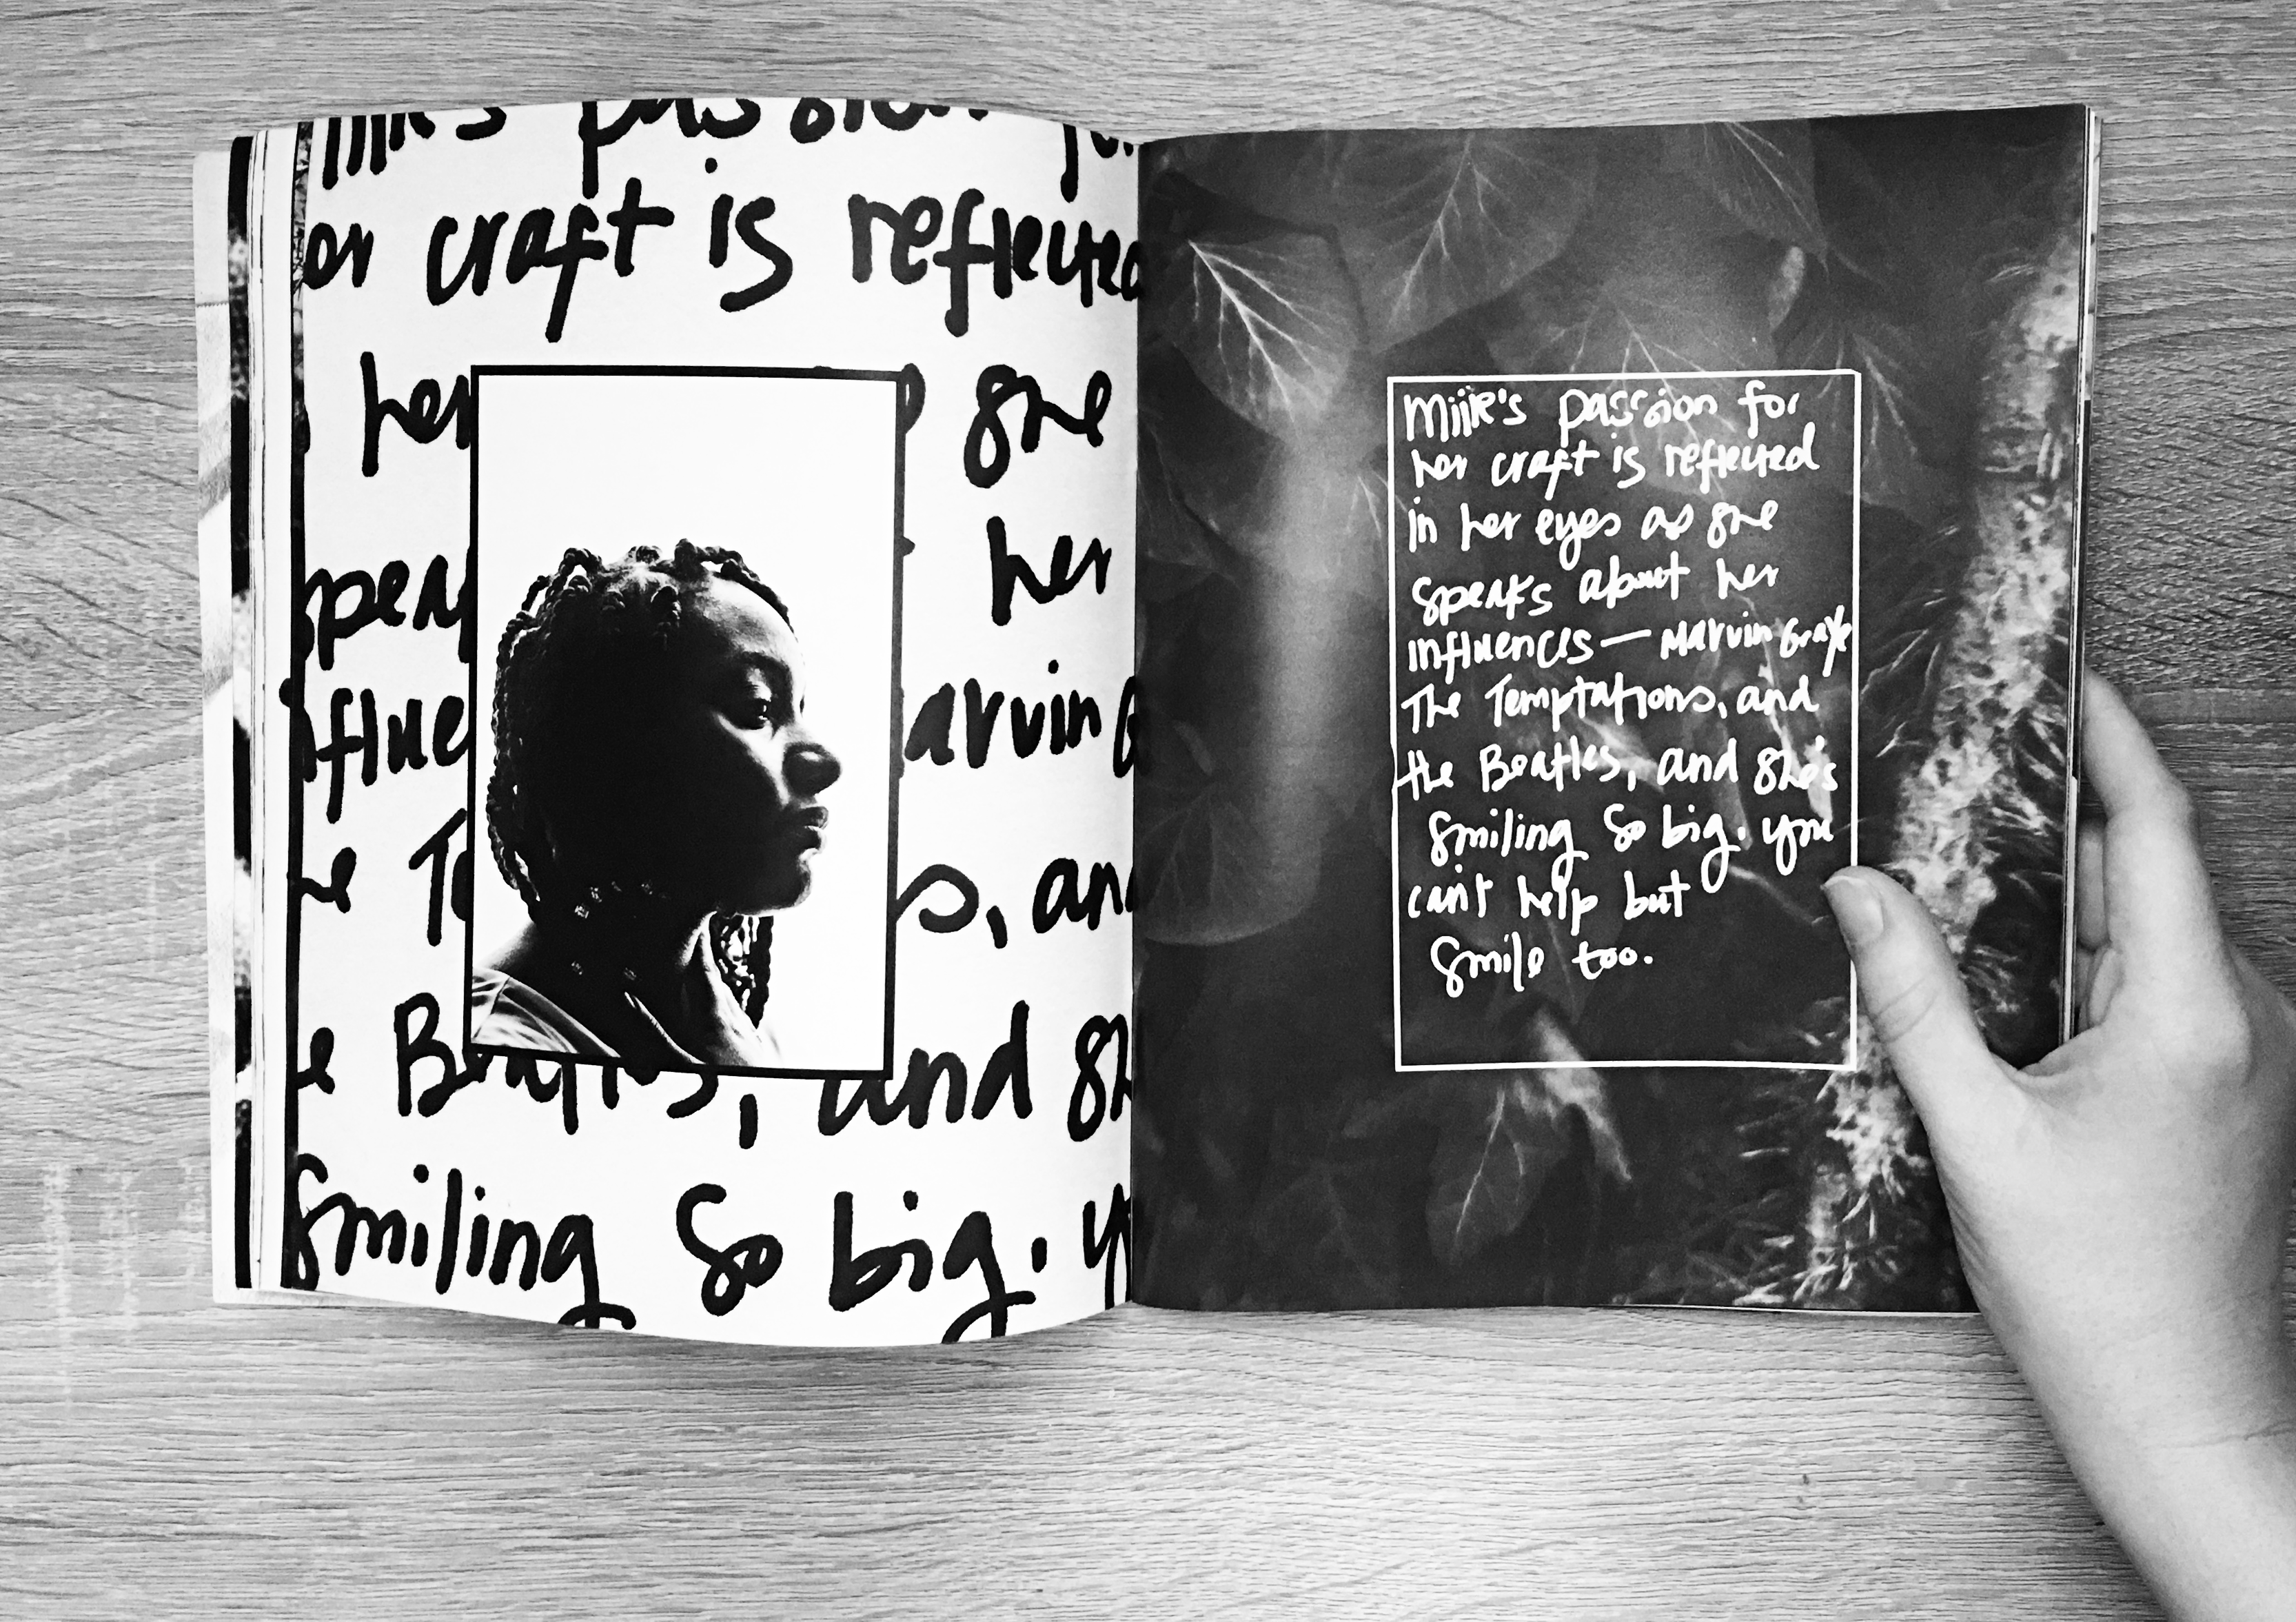 miik's passion for
or craft is reflected
her she
speak her
nfluen arvin G
he Te s, and
e Beatles, and sh
smiling so big. y
miik's passion for
her craft is reflected
in her eyes as she
speaks about her
influences — Marvin Gaye
The Temptations, and
the Beatles, and she's
smiling so big. you
can't help but
smile too.